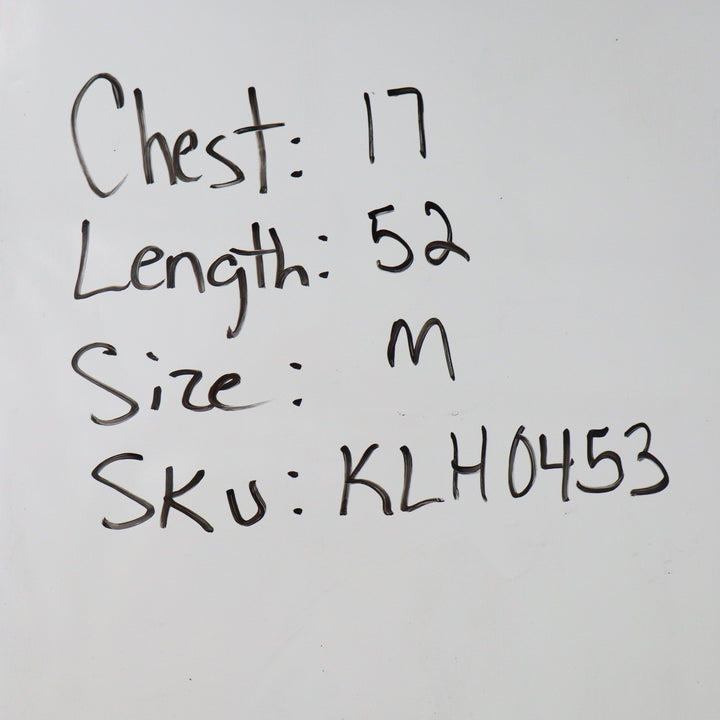 Chest: 17
Length: 52
Size: M
SKU: KLH0453